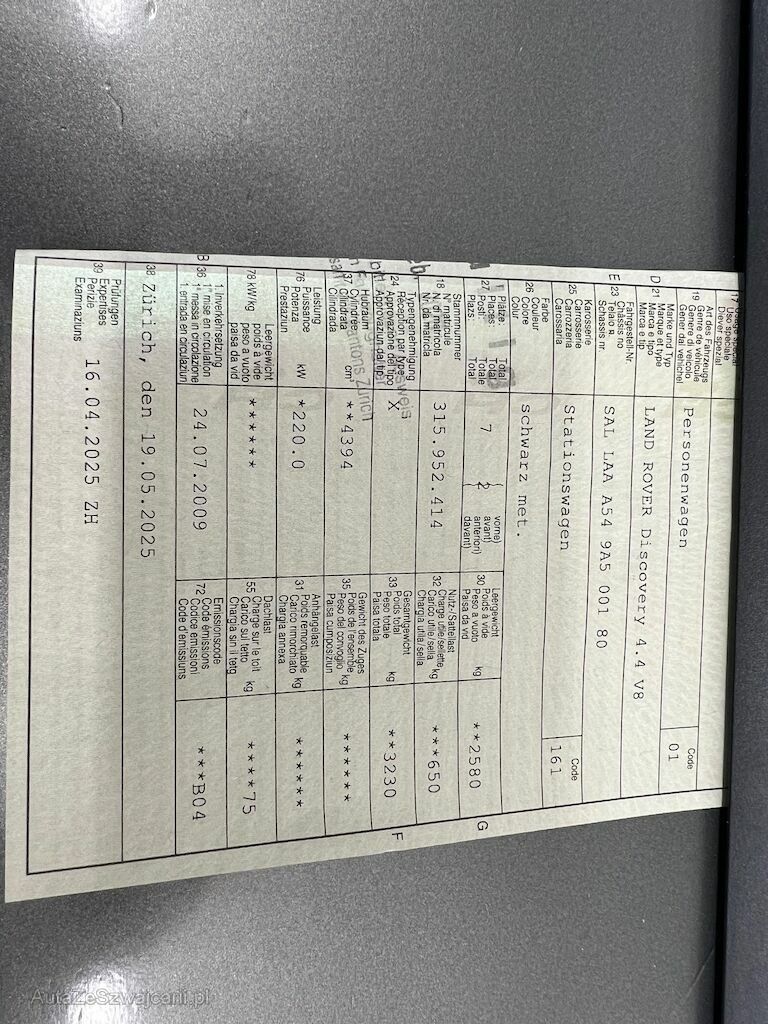 17 Usage spécial
Uso speciale
Diever spezial
Art des Fahrzeugs
19 Genre de véhicule
Genere di veicolo
Gener dal vehichel
Personenwagen
Code
01
D 21 Marke und Typ
Marque et type
Marca e tipo
Marca e tip
LAND ROVER Discovery 4.4 V8
E 23 Fahrgestell-Nr.
Châssis no
Telaio n.
Schassis nr.
SAL LAA A54 9A5 001 80
25 Karosserie
Carrosserie
Carrozzeria
Carosseria
Stationswagen
Code
161
26 Farbe
Couleur
Colore
Colur
schwarz met.
27 Plätze: Total
Places: Total
Posti: Totale
Plazs Total
7
2
vorne)
avant)
anteriori)
davant)
30 Leergewicht
Poids à vide
Peso a vuoto
Paisa da vid
kg
**2580
G
18 Stammnummer
N° matricule
N. di matricola
Nr. da matricla
315.952.414
32 Nutz-/Sattellast
Charge utile/sellette
Carico utile/sella
Chargia utila/sella
kg
***650
24 Typengenehmigung
Réception par type
Approvazione del tipo
Approvaziun dal tip
X
33 Gesamtgewicht
Poids total
Peso totale
Paisa totala
kg
**3230
F
37 Hubraum
Cylindrée
Cilindrata
Cilindrada
cm³
**4394
35 Gewicht des Zuges
Poids de l'ensemble
Peso del convoglio
Paisa cumposiziun
kg
******
76 Leistung
Puissance
Potenza
Prestaziun
kW
*220.0
31 Anhängelast
Poids remorquable
Carico rimorchiato
Chargia annexa
kg
******
78 kW/kg
Leergewicht
poids à vide
peso a vuoto
paisa da vid
******
55 Dachlast
Charge sur le toit
Carico sul tetto
Chargia sin il tetg
kg
****75
B 36 1. Inverkehrsetzung
1re mise en circulation
1a messa in circolazione
entrada en circulaziun
24.07.2009
72 Emissionscode
Code émissions
Codice emissioni
Code d'emissiuns
***B04
38 Zürich, den 19.05.2025
39 Prüfungen
Expertises
Perizie
Examinaziuns
16.04.2025 ZH
AutaZeSzwajcarii.pl